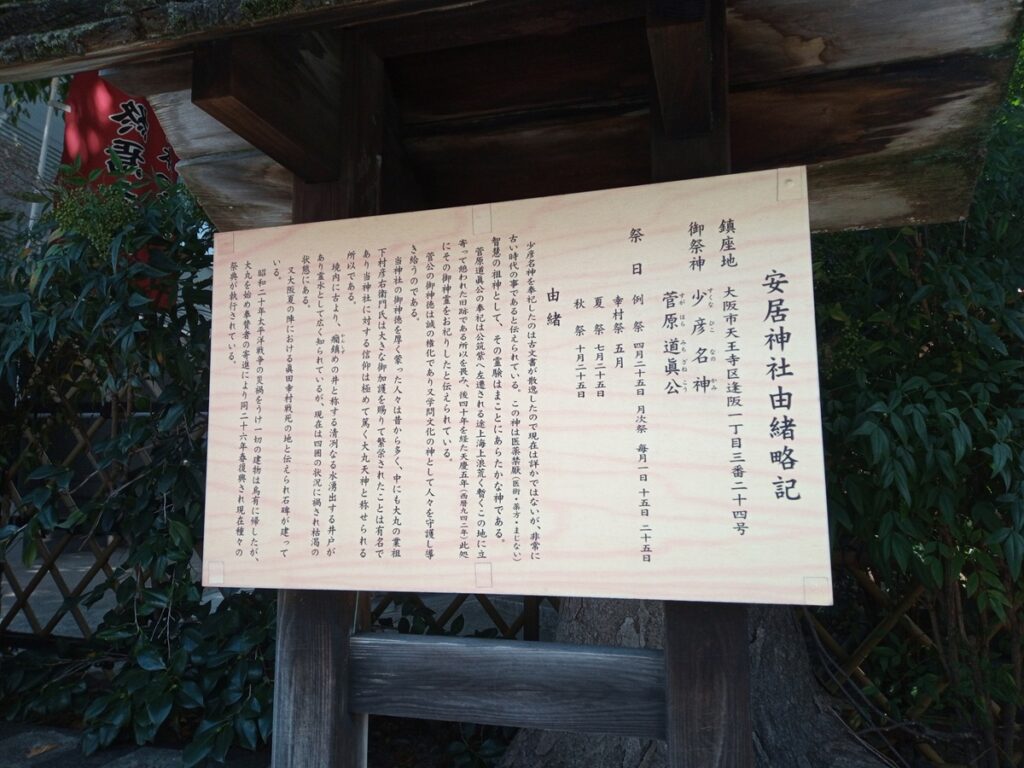 安居神社由緒略記
鎮座地 大阪市天王寺区逢阪一丁目三番二十四号
御祭神 少彦名神
すくなひこなのかみ
菅原道眞公
すがはらみちざねこう
祭日 例祭 四月二十五日 月次祭 毎月一日 十五日 二十五日
幸村祭 五月
夏祭 七月二十五日
秋祭 十月二十五日
由緒
少彦名神を奉祀したのは古文書が散逸したので現在は詳かではないが、非常に
古い時代の事であると伝えられている。この神は医薬禁厭(医術・薬方・まじない)
智慧の祖神として、その霊験はまことにあらたかな神である。
菅原道眞公の奉祀は公筑紫へ左遷される途上海上浪荒く暫くこの地に立
寄って憩われた旧跡である所以を畏み、後四十年を経た天慶五年(西暦九四二年)此処
にその御神霊をお祀りしたと伝えられている。
菅公の御神徳は誠の権化であり又学問文化の神として人々を守護し導
き給うのである。
当神社の御神徳を厚く蒙った人々は昔から多く、中にも大丸の業祖
下村彦右衛門氏は大きな御加護を賜りて繁栄されたことは有名で
あり当神社に対する信仰は極めて篤く大丸天神と称せられる
所以である。
境内に古より、癇鎮めの井と称する清冽なる水湧出する井戸が
かんしづ
あり霊水として広く知られているが、現在は四囲の状況に禍され枯渇の
状態にある。
又大阪夏の陣における眞田幸村戦死の地と伝えられ石碑が建って
いる。
昭和二十年太平洋戦争の災禍をうけ一切の建物は烏有に帰したが、
大丸を始め奉賛者の寄進により同二十六年春復興され現在種々の
祭典が執行されている。
終焉